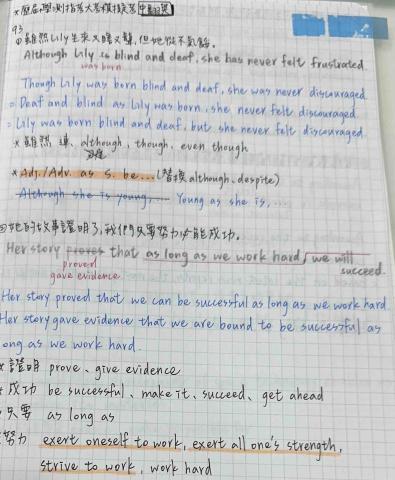 *歷屆學測指考大考模擬考中翻英
93
①雖然Lily生來又瞎又聾,但她從不氣餒。
Although Lily is blind and deaf, she has never felt frustrated.
was born
Though Lily was born blind and deaf, she was never discouraged.
= Deaf and blind as Lily was born, she never felt discouraged.
= Lily was born blind and deaf, but she never felt discouraged.
* 雖然 連. although, though, even though
*Adj./Adv. as S. be...(替換although, despite)
Although she is young, ... Young as she is, ...
②她的故事證明了,我們只要努力必能成功。
Her story proves that as long as we work hard, we will
proved succeed.
gave evidence
Her story proved that we can be successful as long as we work hard.
Her story gave evidence that we are bound to be successful as
ong as we work hard.
* 證明 prove、give evidence
* 成功 be successful、make it、succeed、get ahead
只要 as long as
努力 exert oneself to work, exert all one's strength,
strive to work, work hard